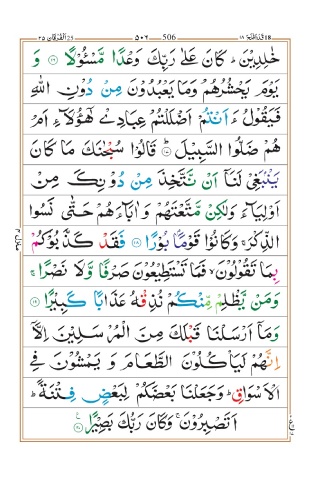 قد افلح ١٨ ٥٠٦ 506 الفرقان ٢٥
خٰلِدِيْنَ ؕ كَانَ عَلٰى رَبِّكَ وَعْدًا مَّسْـُٔوْلًا ﴿۱۶﴾ وَ
يَوْمَ يَحْشُرُهُمْ وَمَا يَعْبُدُوْنَ مِنْ دُوْنِ اللّٰهِ
فَيَقُوْلُ ءَاَنْتُمْ اَضْلَلْتُمْ عِبَادِيْ هٰٓؤُلَآءِ اَمْ
هُمْ ضَلُّوا السَّبِيْلَ ﴿۱۷﴾ؕ قَالُوْا سُبْحٰنَكَ مَا كَانَ
يَنْۢبَغِيْ لَنَاۤ اَنْ نَّتَّخِذَ مِنْ دُوْنِكَ مِنْ
اَوْلِيَآءَ وَلٰكِنْ مَّتَّعْتَهُمْ وَاٰبَآءَهُمْ حَتّٰى نَسُوا
الذِّكْرَ ۚ وَكَانُوْا قَوْمًۢا بُوْرًا ﴿۱۸﴾ فَقَدْ كَذَّبُوْكُمْ
بِمَا تَقُوْلُوْنَ ۙ فَمَا تَسْتَطِيْعُوْنَ صَرْفًا وَّلَا نَصْرًا ۚ
وَمَنْ يَّظْلِمْ مِّنْكُمْ نُذِقْهُ عَذَابًا كَبِيْرًا ﴿۱۹﴾
وَمَاۤ اَرْسَلْنَا قَبْلَكَ مِنَ الْمُرْسَلِيْنَ اِلَّاۤ
اِنَّهُمْ لَيَاْكُلُوْنَ الطَّعَامَ وَ يَمْشُوْنَ فِي
الْاَسْوَاقِ ؕ وَجَعَلْنَا بَعْضَكُمْ لِبَعْضٍ فِتْنَةً ؕ
اَتَصْبِرُوْنَ ۚ وَكَانَ رَبُّكَ بَصِيْرًا ﴿۲۰﴾